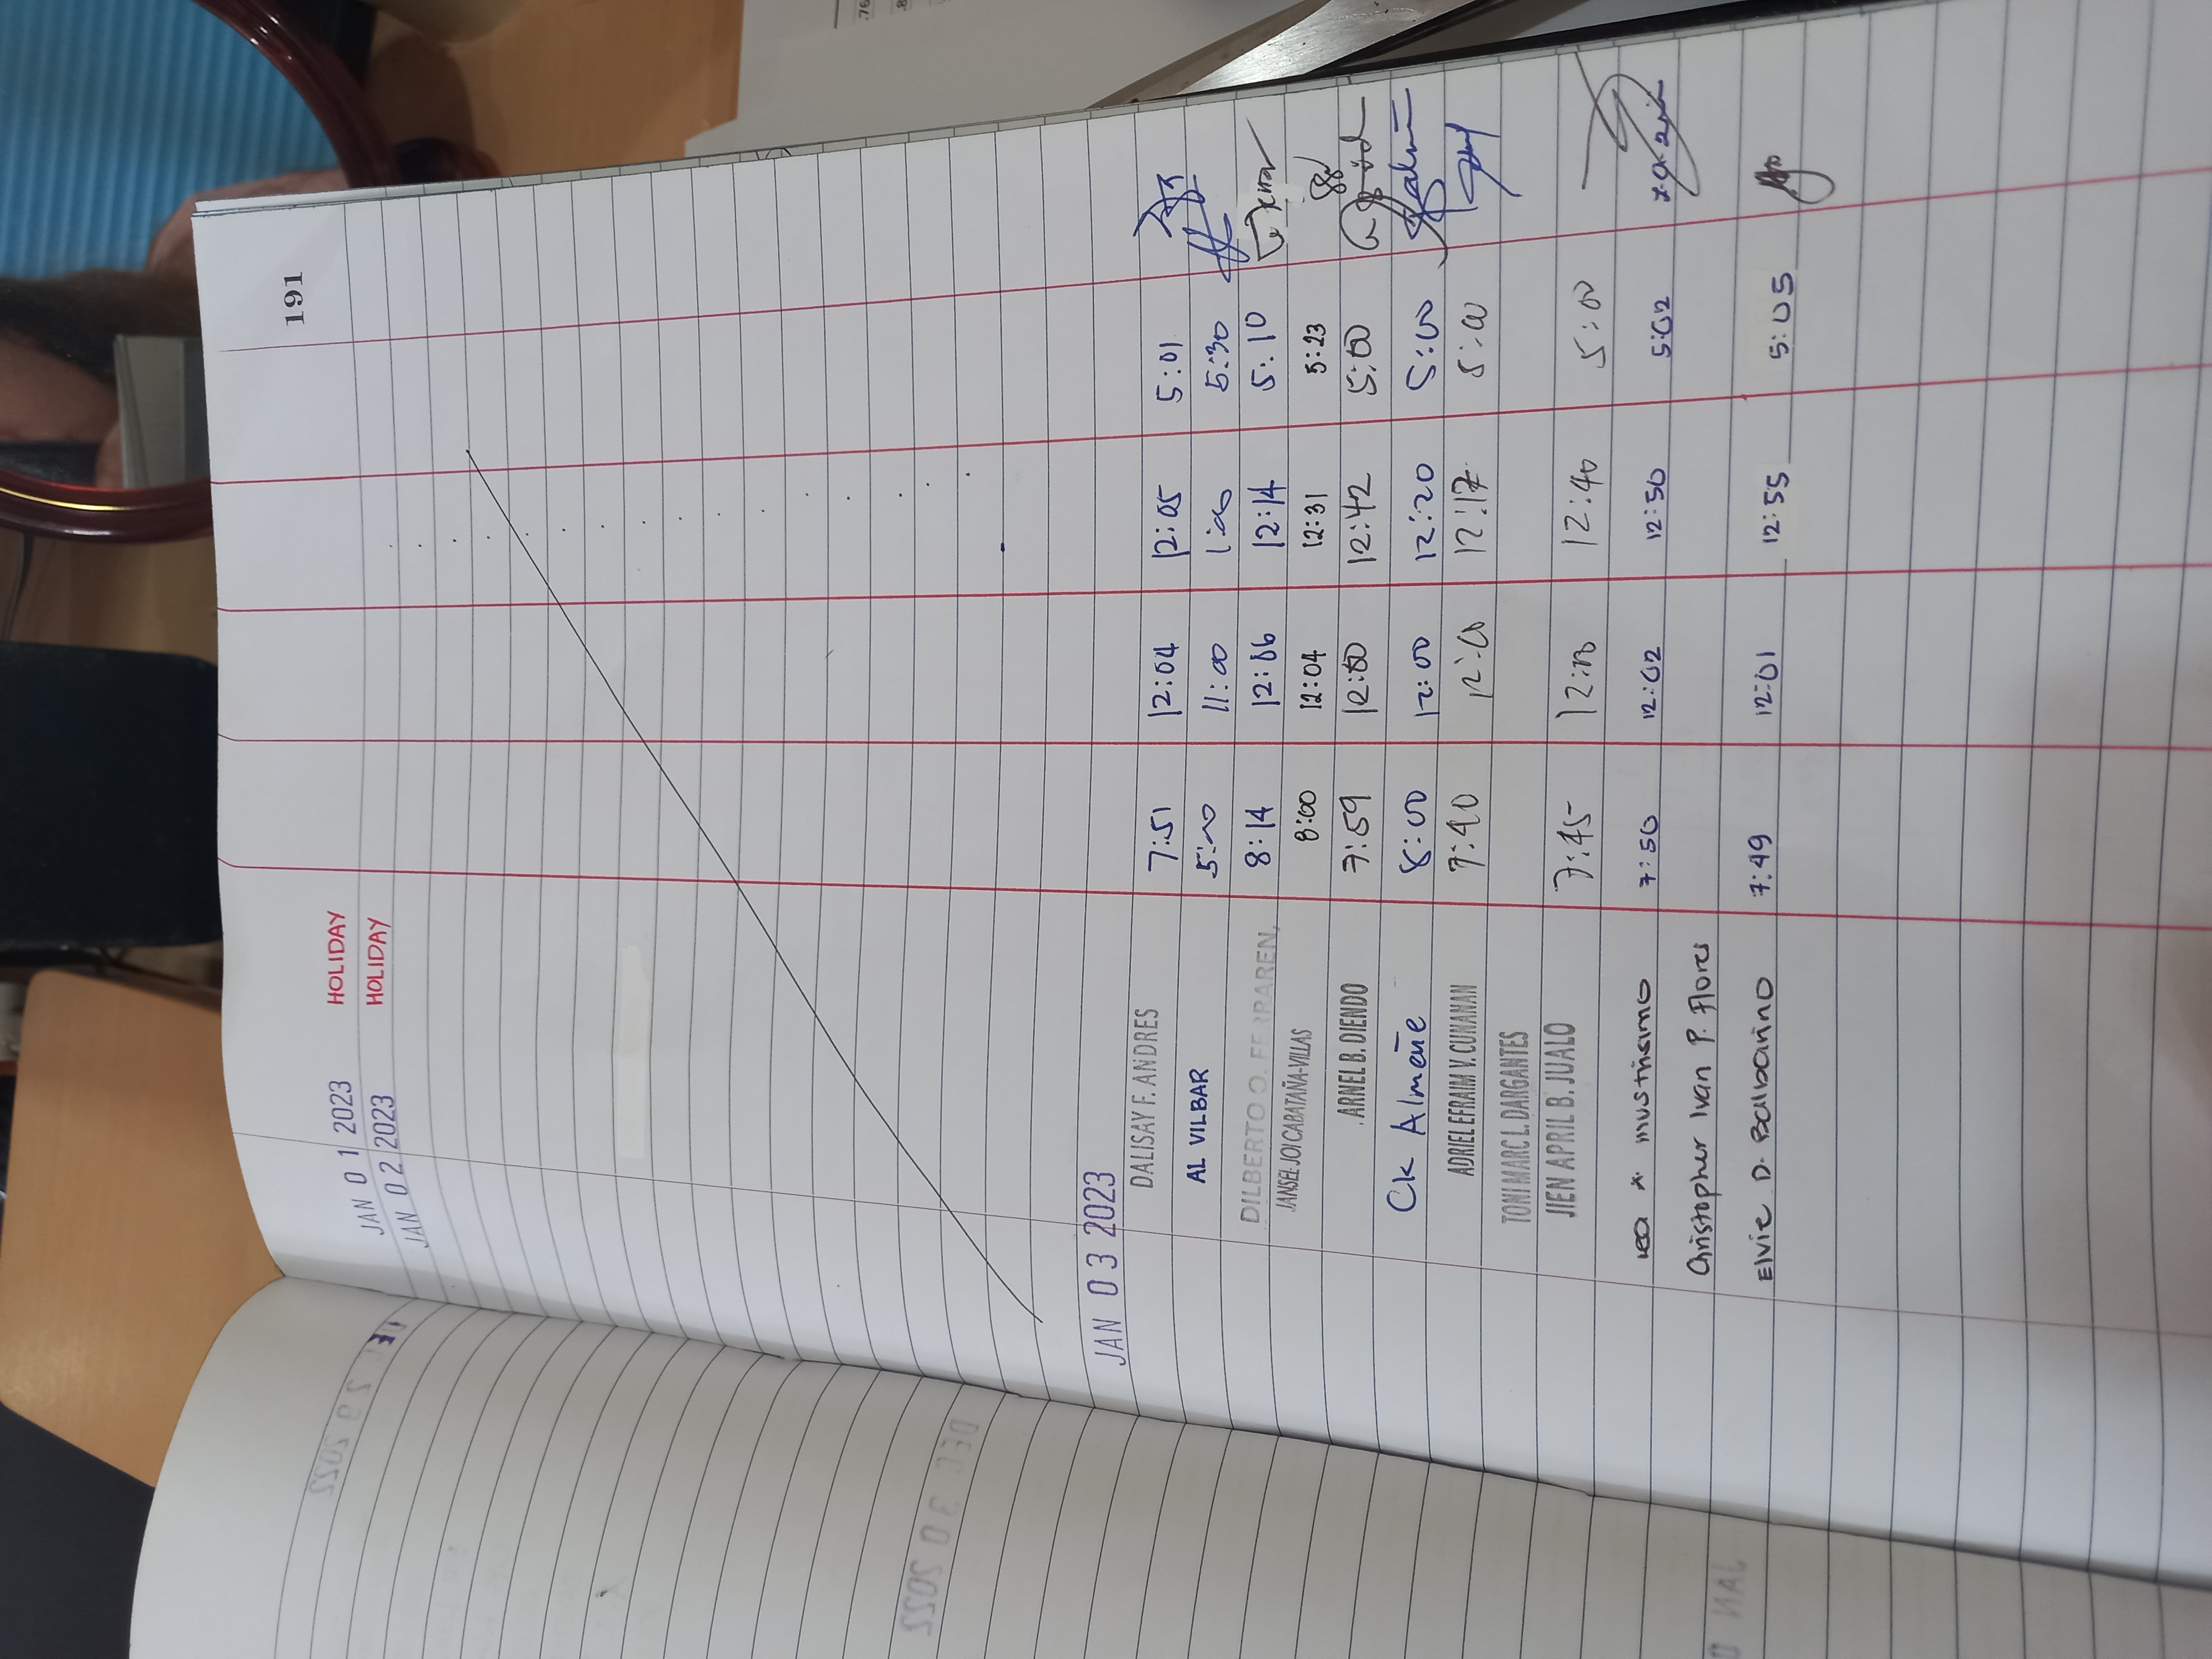 191
JAN 0 1 2023 HOLIDAY
JAN 0 2 2023 HOLIDAY
JAN 0 3 2023
DALISAY F. ANDRES 7:51 12:04 12:05 5:01
AL VILBAR 5:00 11:00 1:00 5:30
DILBERTO O. FERRAREN, 8:14 12:06 12:14 5:10
JANSEL JOI CABATAÑA-VILLAS 8:00 12:04 12:31 5:23
ARNEL B. DIENDO 7:59 12:00 12:42 5:00
CK Almeñe 8:00 12:00 12:20 5:00
ADRIEL EFRAIM V. CUNANAN 7:40 12:00 12:17 5:00
TONI MARC L. DARGANTES
JIEN APRIL B. JUALO 7:45 12:00 12:40 5:00
7:50 12:02 12:50 5:02
Christopher Ivan P. Flores
Elvie D. Balbarino 7:49 12:01 12:55 5:05
DEC 2 9 2022
DEC 3 0 2022
JAN